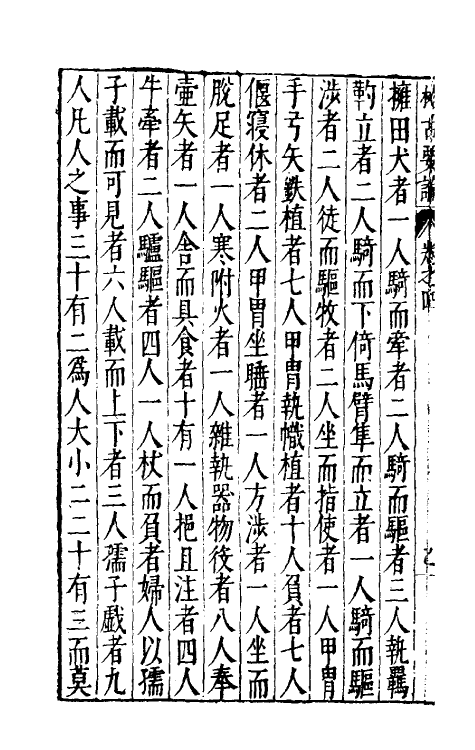 格古要論 卷之四
擁田犬者一人騎而牽者二人騎而驅者三人執羈
靮立者二人騎而下倚馬臂隼而立者一人騎而驅
涉者二人徒而驅牧者二人坐而指使者一人甲冑
手弓矢鉄植者七人甲冑執幟植者十人負者七人
偃寢休者二人甲冑坐睡者一人方涉者一人坐而
脫足者一人寒附火者一人雜執器物役者八人奉
壷矢者一人舎而具食者十有一人挹且注者四人
牛牽者二人驢驅者四人一人杖而負者婦人以孺
子載而可見者六人載而上下者三人孺子戲者九
人凡人之事三十有二爲人大小二二十有三而莫